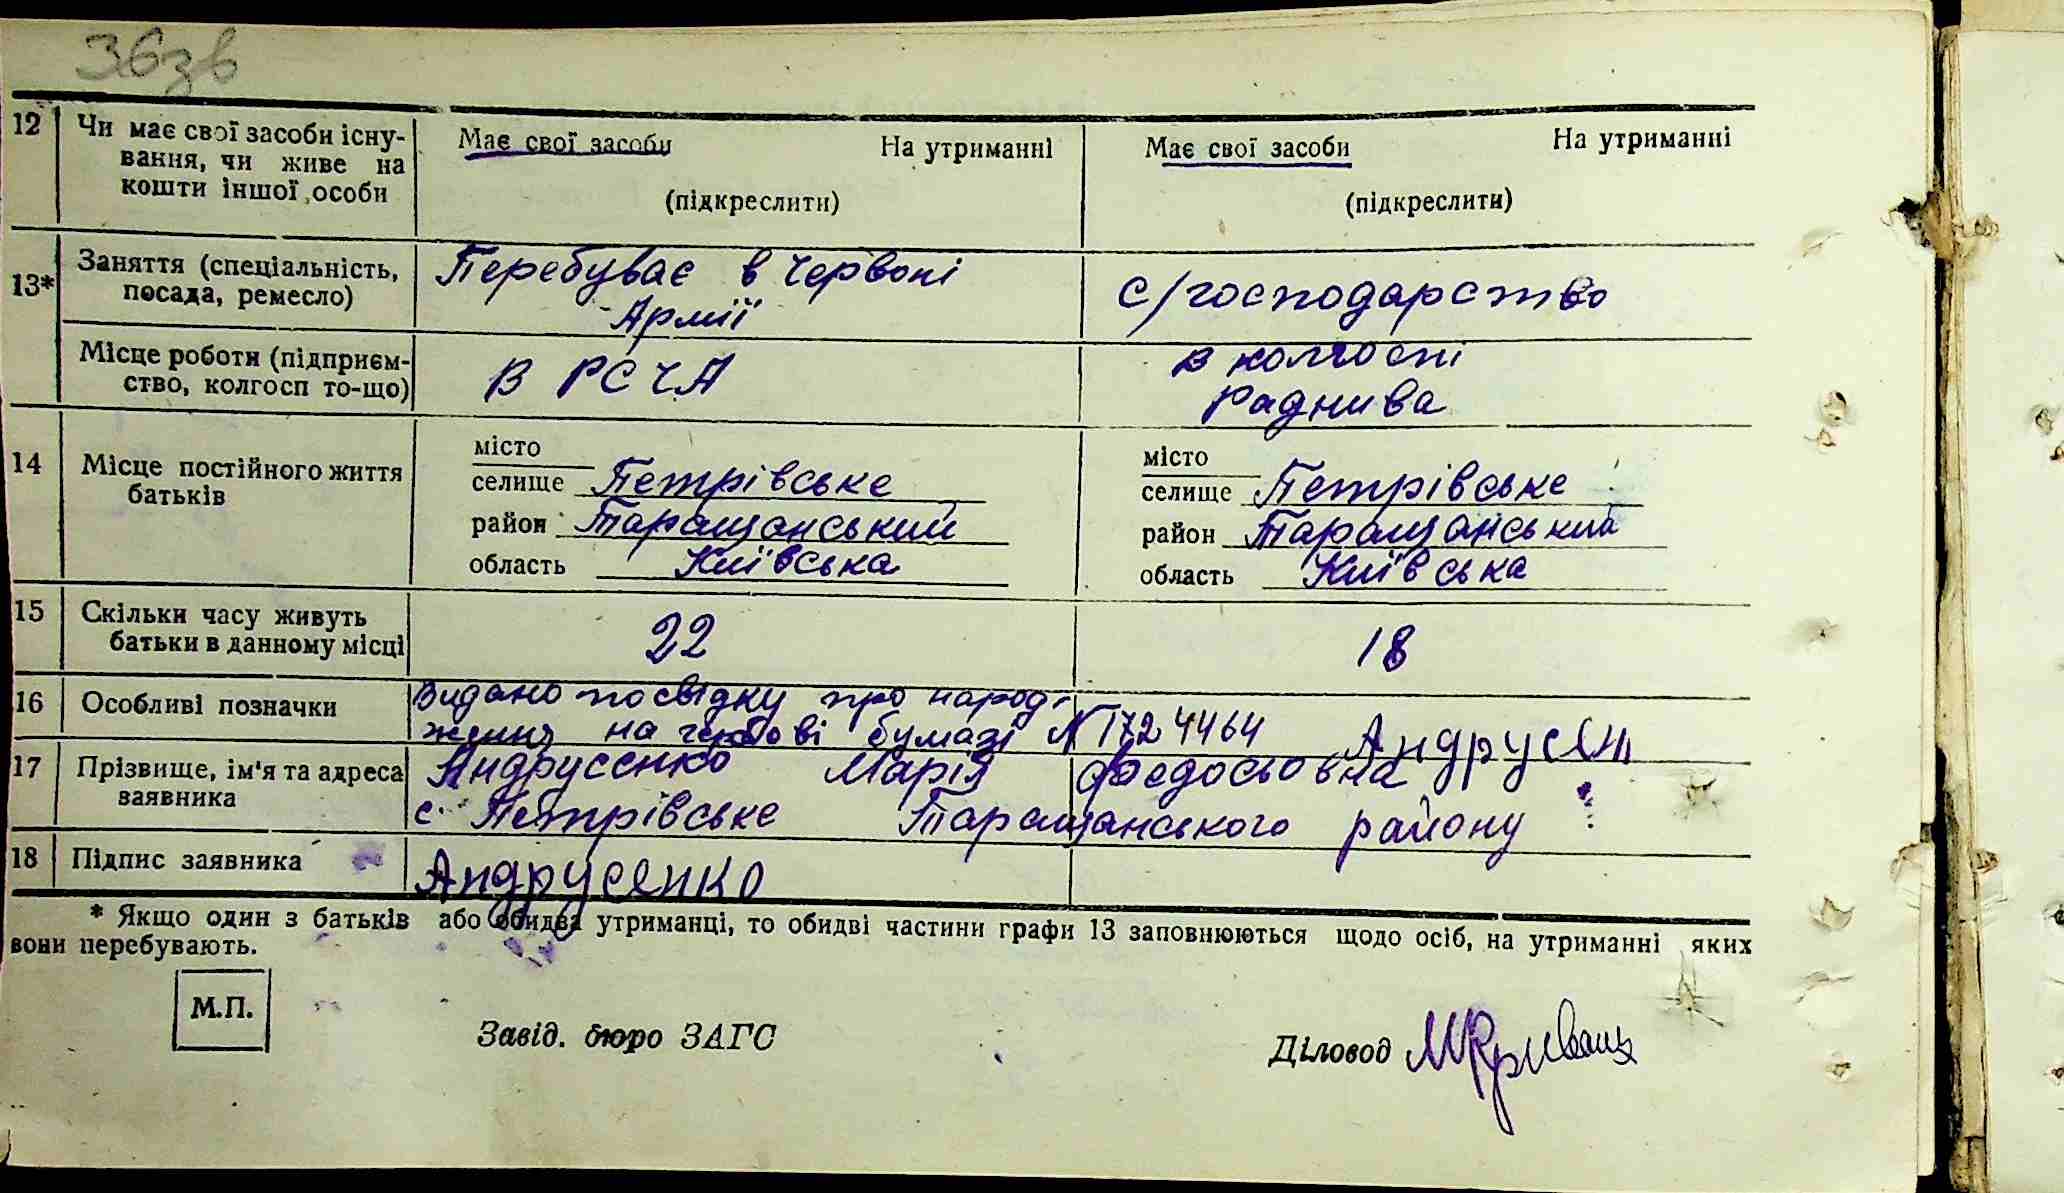 36зв
12 Чи має свої засоби існу- Має свої засоби На утриманні Має свої засоби На утриманні
вання, чи живе на
кошти іншої особи (підкреслити) (підкреслити)
13* Заняття (спеціальність, Перебуває в Червоні с/господарство
посада, ремесло) Армії
Місце роботи (підприєм- в РСЧА в колгоспі
ство, колгосп то-що) Раднива
14 Місце постійного життя місто місто
батьків селище Петрівське селище Петрівське
район Таращанський район Таращанський
область Київська область Київська
15 Скільки часу живуть 22 18
батьки в данному місці
16 Особливі позначки Видано посвідку про народ-
ження на гербові бумазі № 1724464 Андрусен
17 Прізвище, ім'я та адреса Андрусенко Марія Феодосьовна
заявника с. Петрівське Таращанського району
18 Підпис заявника Андрусенко
* Якщо один з батьків або обидва утриманці, то обидві частини графи 13 заповнюються щодо осіб, на утриманні яких
вони перебувають.
М.П.
Завід. бюро ЗАГС Діловод